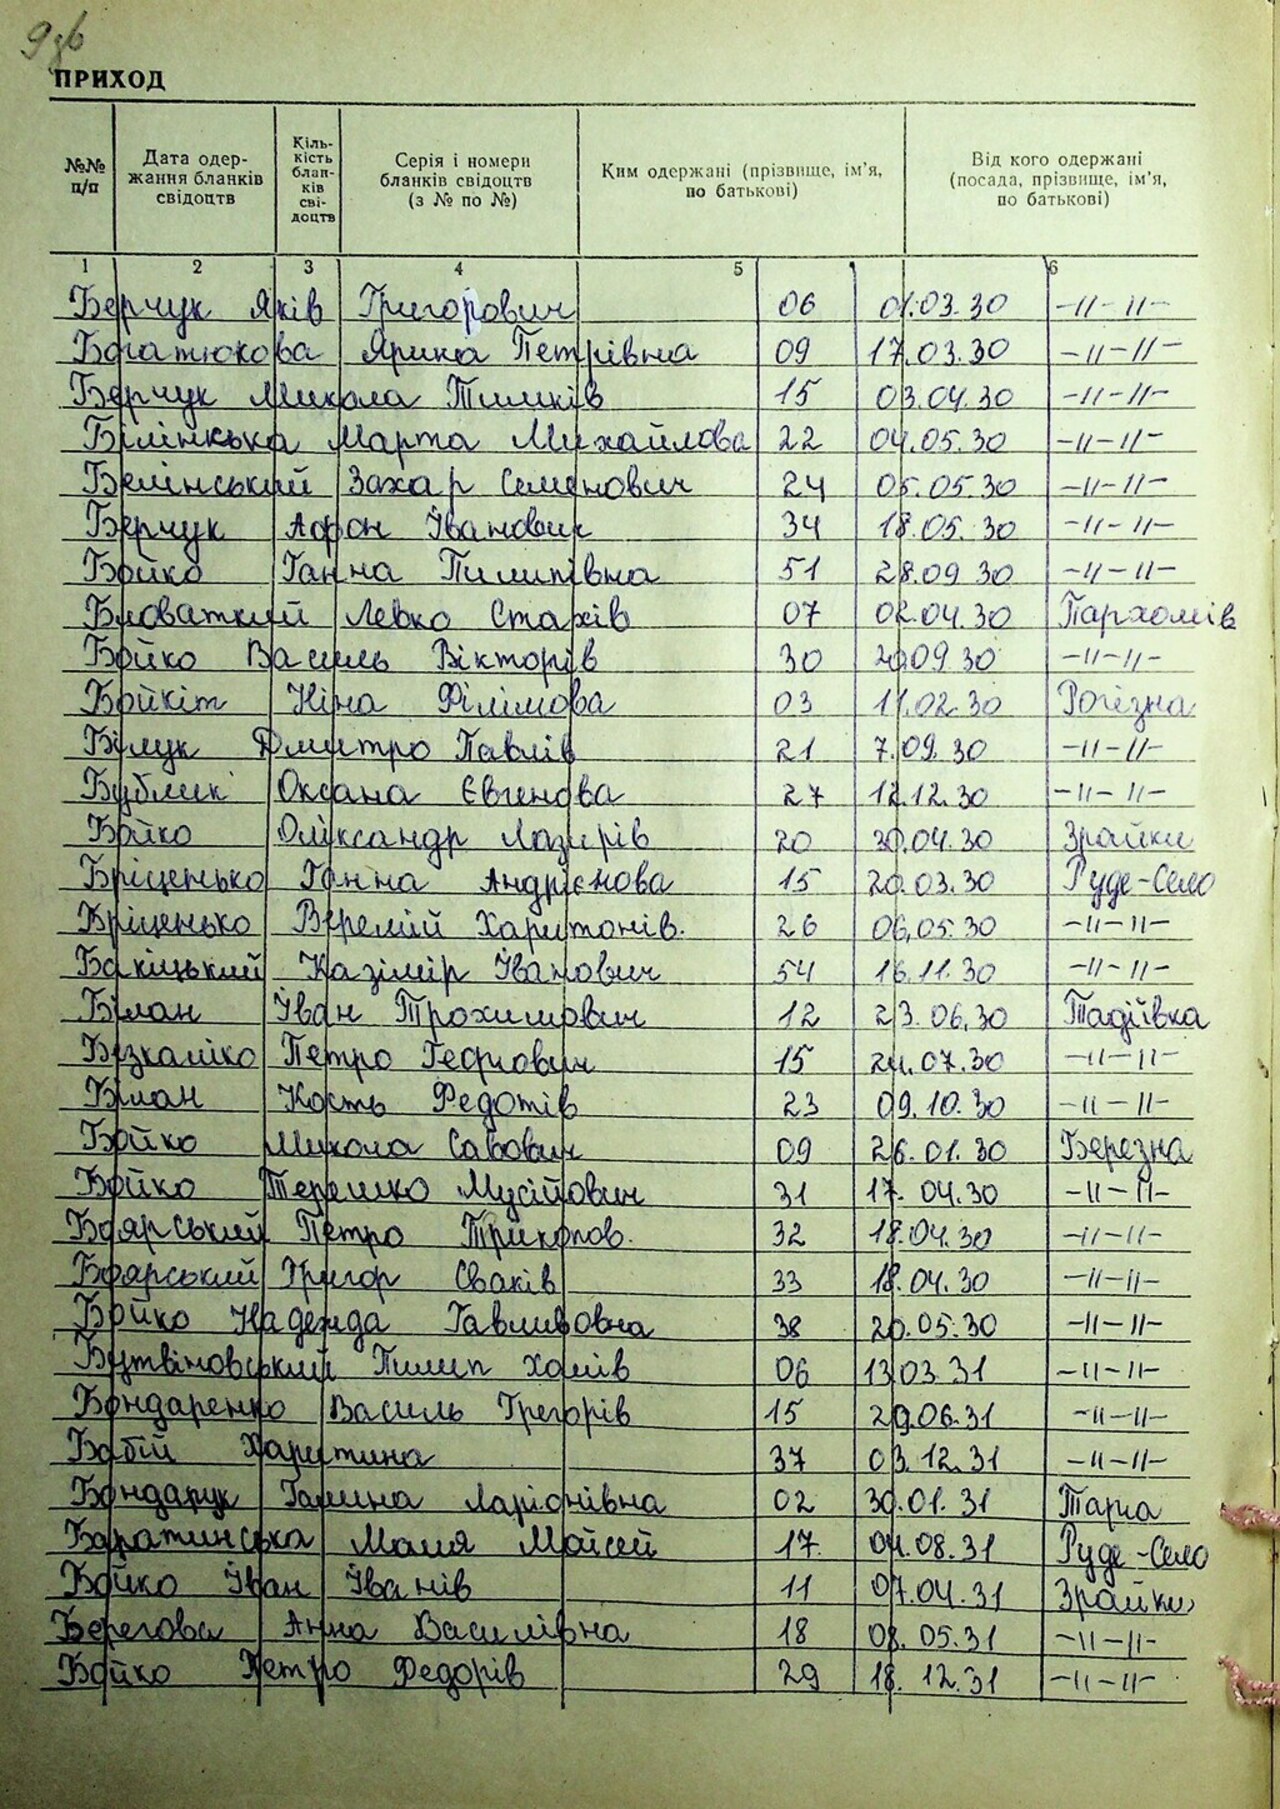 9зв
ПРИХОД
№№ п/п
Дата одер-
жання бланків
свідоцтв
Кіль-
кість
блан-
ків
сві-
доцтв
Серія і номери
бланків свідоцтв
(з № по №)
Ким одержані (прізвище, ім'я,
по батькові)
Від кого одержані
(посада, прізвище, ім'я,
по батькові)
1 2 3 4 5 6
Берчук Яків Григорович 06 01.03.30 -||-||-
Богатюкова Ярина Петрівна 09 17.03.30 -||-||-
Берчук Микола Тимків 15 03.04.30 -||-||-
Білінкька Марта Михайлова 22 04.05.30 -||-||-
Белінський Захар Семенович 24 05.05.30 -||-||-
Берчук Афон Іванович 34 18.05.30 -||-||-
Бойко Ганна Пилипівна 51 28.09 30 -||-||-
Бловаткий Левко Стахів 07 02.04.30 Пархомів
Бойко Василь Вікторів 30 20.09.30 -||-||-
Бойкіт Ніна Філімова 03 11.02.30 Рогізна
Білук Дмитро Павлів 21 7.09.30 -||-||-
Бублик Оксана Євгенова 27 12.12.30 -||-||-
Бойко Оліксандр Лазирів 20 30.04.30 Зрайки
Бріценько Ганна Андрієнова 15 20.03.30 Руде-Село
Бріценько Веремій Харитонів. 26 06.05.30 -||-||-
Бакіцький Казімір Іванович 54 16.11.30 -||-||-
Білан Іван Трохимович 12 23.06.30 Тадіївка
Безкаліко Петро 15 24.07.30 -||-||-
Білан Кость Федотів 23 09.10.30 -||-||-
Бойко Микола Савович 09 26.01.30 Березна
Бойко Терешко Мусійович 31 17.04.30 -||-||-
Боярський Петро Прикопов. 32 18.04.30 -||-||-
Боярський Григор Сваків 33 18.04.30 -||-||-
Бойко Надежда Гавливовна 38 20.05.30 -||-||-
Бутвіновський Пилип Хомів 06 13.03.31 -||-||-
Бондаренко Василь Грегорів 15 29.06.31 -||-||-
Бабій Харитина 37 03.12.31 -||-||-
Бондарук Галина Ларіонівна 02 30.01.31 Тарга
Баратинська Маля Мойсей 17. 04.08.31 Руде-Село
Бойко Іван Іванів 11 07.04.31 Зрайки
Берегова Анна Василівна 18 08.05.31 -||-||-
Бойко Петро Федорів 29 18.12.31 -||-||-